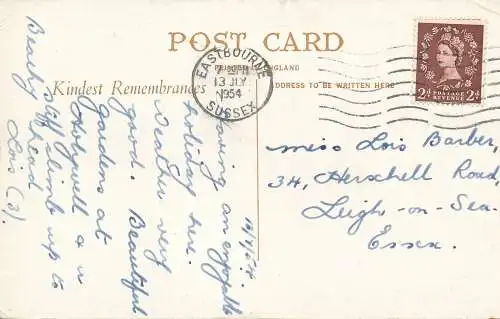 POST CARD
PRINTED IN ENGLAND
Kindest Remembrances
ADDRESS TO BE WRITTEN HERE
EASTBOURNE
13 JLY
1954
SUSSEX
2d POSTAGE REVENUE 2d
Having an enjoyable
holiday here.
Weather very
good. Beautiful
gardens at
Holywell & a
stiff climb up to
Beachy Head
Lois (3).
Miss Lois Barber,
34, Herschell Road,
Leigh-on-Sea.
Essex.